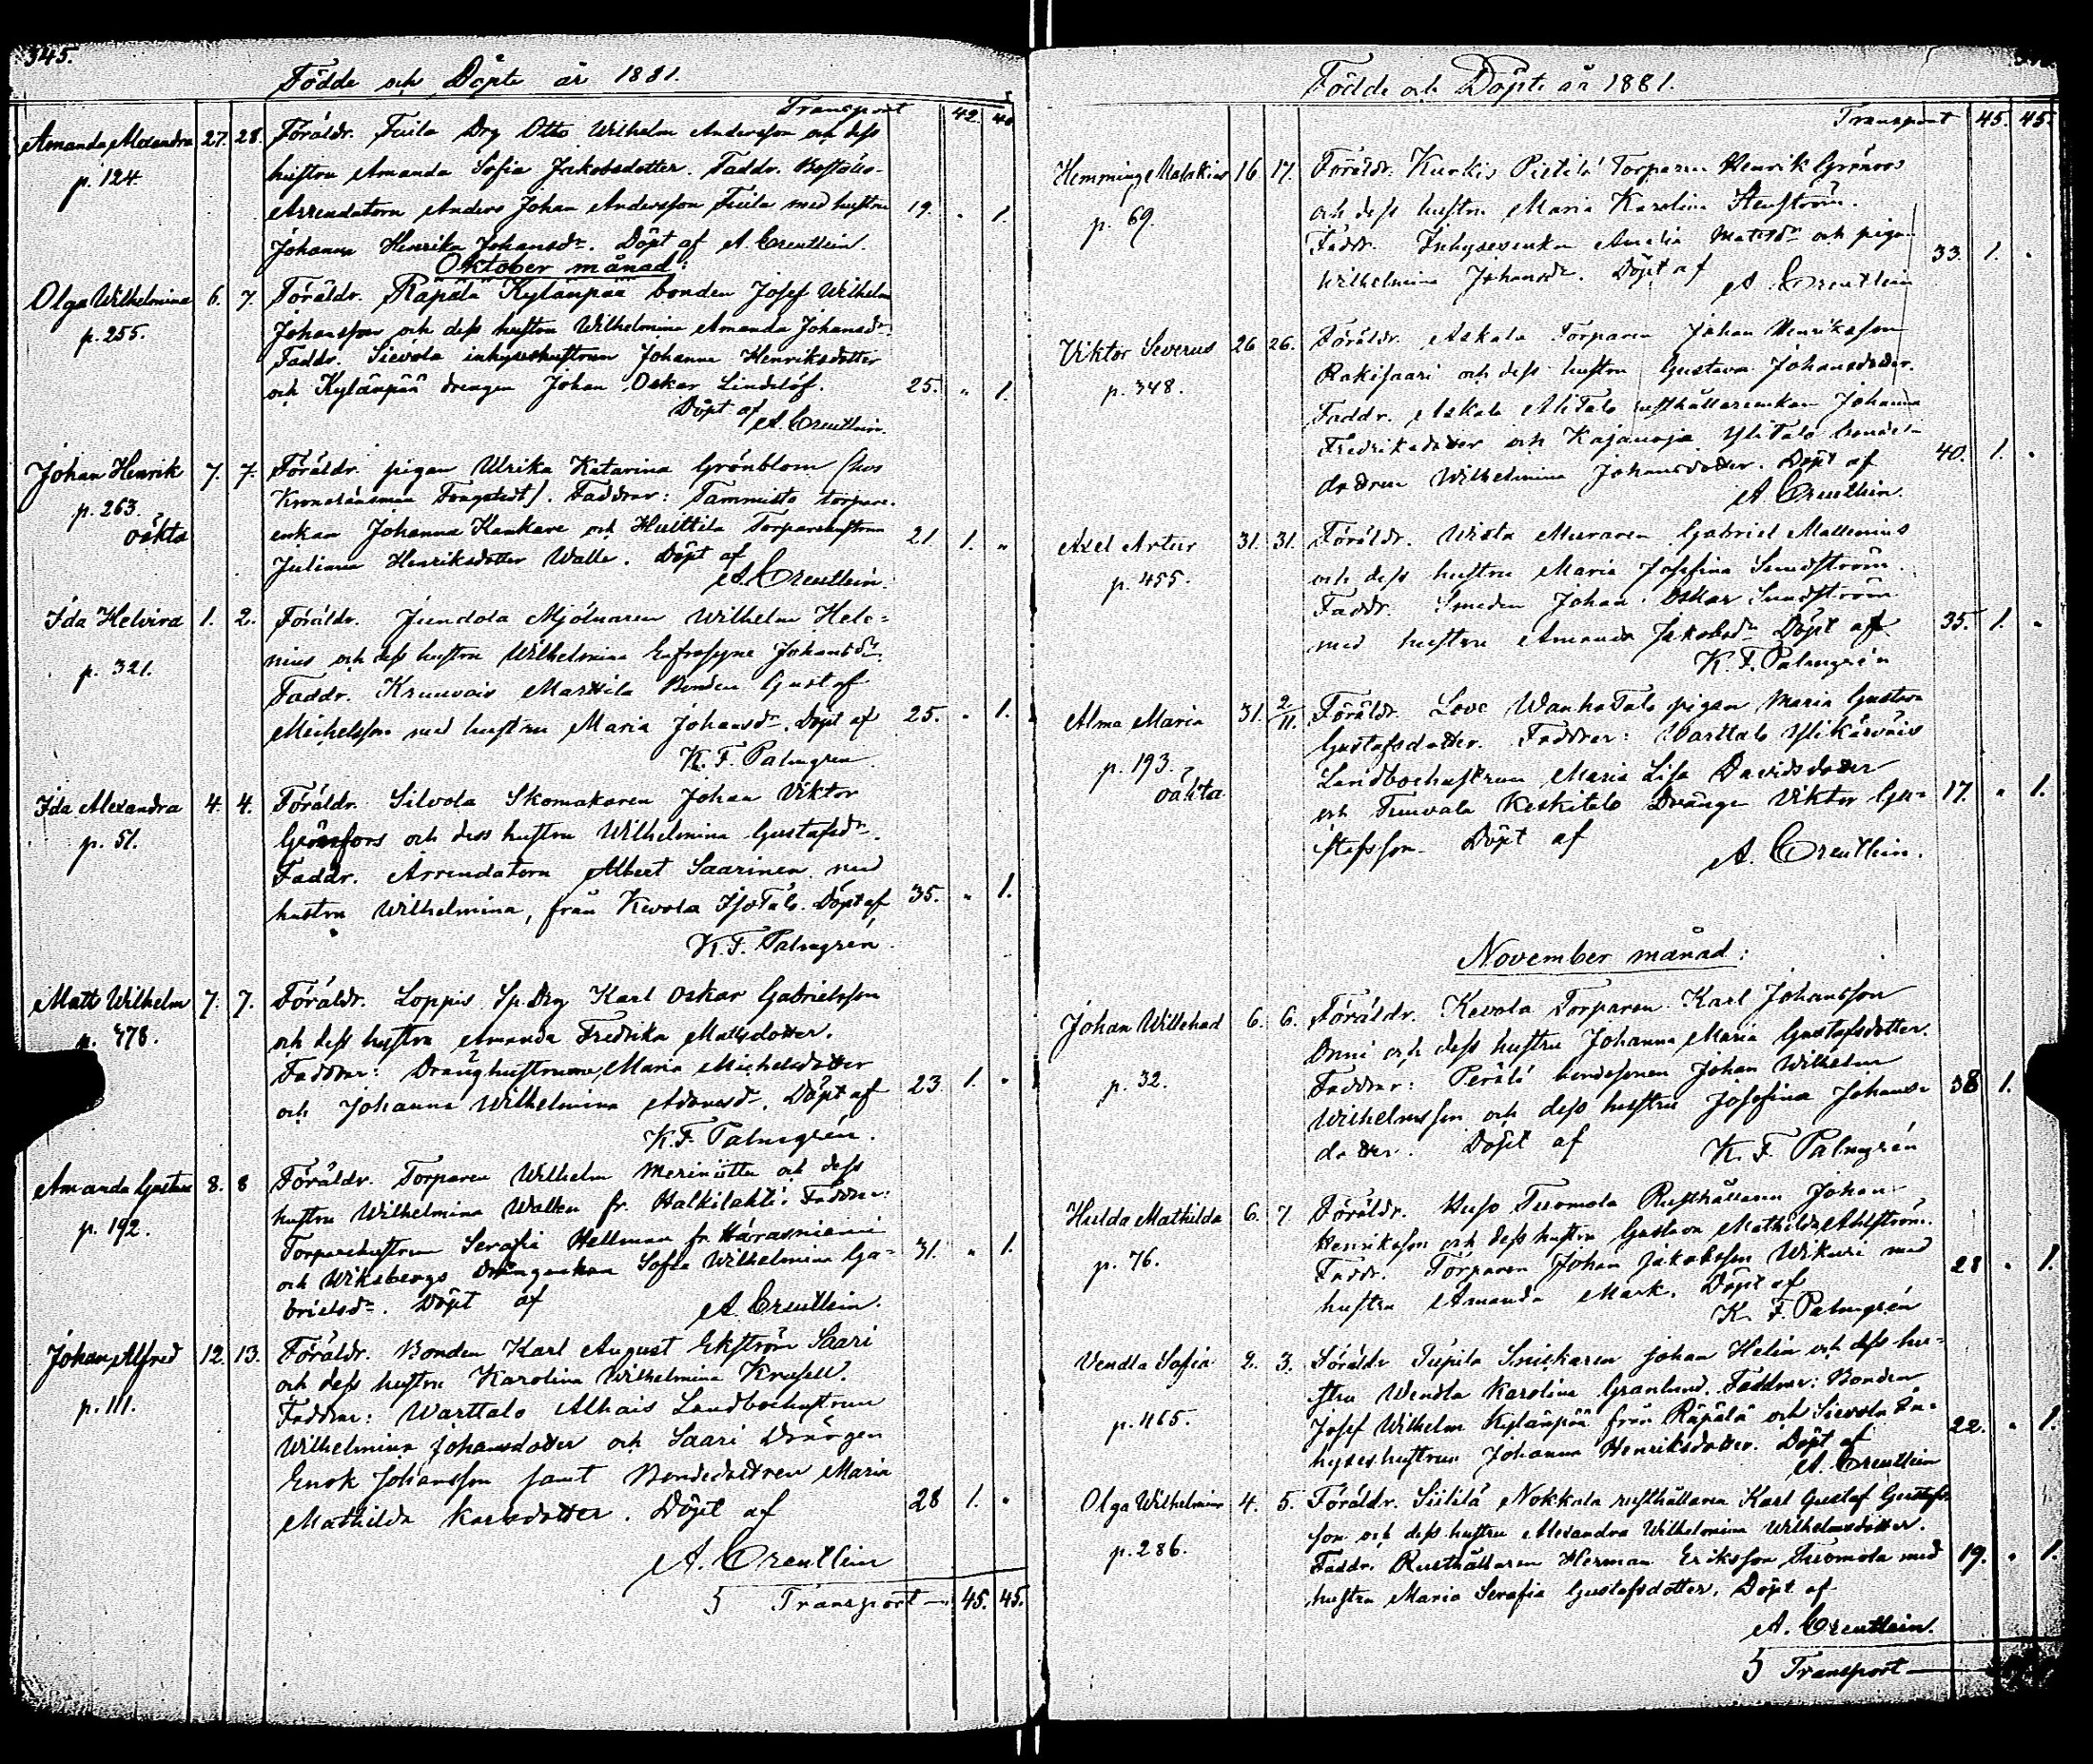 345.
Födde och Döpte år 1881.
Transport 42. 40
Amanda Alexandra 27. 28. Föräldr. Fiila Drg Otto Wilhelm Andersson och dess
p. 124. hustru Amanda Sofia Jakobsdotter. Faddr. Boställs-
Arrendatorn Anders Johan Andersson Fiila med hustru 19. " 1.
Johanna Henrika Johansdr. Döpt af A. Creutlein.
Oktober månad:
Olga Wilhelmina 6. 7. Föräldr. Räpälä Kylänpää bonden Josef Wilhelm
p. 255. Johansson och dess hustru Wilhelmina Amanda Johansdr.
Faddr. Sievola inhyseshustrun Johanna Henriksdotter
och Kylänpää drengen Johan Oskar Lindelöf. 25. " 1.
Döpt af A. Creutlein.
Johan Henrik 7. 7. Föräldr. pigan Ulrika Katarina Grönblom (hos
p. 263. Kronolänsman Fongstedt). Faddrar: Tammisto torpare-
oäkta enkan Johanna Kankare och Huittila Torparehustrun 21 1. "
Juliana Henriksdotter Walle. Döpt af
A. Creutlein.
Ida Helvira 1. 2. Föräldr. Jundola Mjölnaren Wilhelm Hele-
p. 321. nius och dess hustru Wilhelmina Eufrosyne Johansdr.
Faddr. Kruuvais Marttila Bonden Gustaf
Michelsson med hustru Maria Johansdr. Döpt af 25. " 1.
K. F. Palmgren.
Ida Alexandra 4. 4. Föräldr. Silvola Skomakaren Johan Viktor
p. 51. Grönfors och dess hustru Wilhelmina Gustafsdr.
Faddr. Arrendatorn Albert Saarinen med
hustru Wilhelmina, från Kevola IsoTalo. Döpt af 35. " 1.
K. F. Palmgrén
Matts Wilhelm 7. 7. Föräldr. Loppis Sp. Drg Karl Oskar Gabrielsson
p. 478. och dess hustru Amanda Fredrika Mattsdotter.
Faddrar: Dränghustrurna, Maria Michelsdotter
och Johanna Wilhelmina Adamsdr. Döpt af 23. 1. "
K. F. Palmgrén.
Amanda Gustava 8. 8 Föräldr. Torparen Wilhelm Meriniittu och dess
p. 192. hustru Wilhelmina Wallen fr. Halkilahti. Faddrar:
Torparehustrun Serafia Hellman fr. Härrasniemi
och Wiksbergs Drängenkan Sofia Wilhelmina Ga- 31. " 1.
brielsdr. Döpt af A. Creutlein.
Johan Alfred 12. 13. Föräldr. Bonden Karl August Ekström Saari
p. 111. och dess hustru Karolina Wilhelmina Krusell.
Faddrar: Warttalo Alhais Landbohustrun
Wilhelmina Johansdotter och Saari Drängen
Enok Johansson samt Bondedottren Maria
Mathilda Karlsdotter. Döpt af 28 1. "
A. Creutlein
5 Transport 45. 45.
Födde och Döpte år 1881.
Transport 45. 45.
Hemming Malakias 16 17. Föräldr. Kurkis Pietilä Torparen Henrik Grönroos
p. 69. och dess hustru Maria Karolina Stenström.
Faddr. Inhysesenkan Amalia Mattsdr och pigan 33. 1. "
Wilhelmina Johansdr. Döpt af
A. Creutlein
Viktor Severus 26 26. Föräldr. Askala Torparen Johan Henriksson
p. 348. Rakisaari och dess hustru Gustava Johansdotter.
Faddr. Askala AliTalo rusthållarenkan Johanna
Fredriksdotter och Kajanoja YliTalo bonde-
dottren Wilhelmina Johansdotter. Döpt af 40. 1. "
A. Creutlein.
Axel Artur 31. 31. Föräldr. Wista Muraren Gabriel Mallenius
p. 455. och dess hustru Maria Josefina Sundström.
Faddr. Smeden Johan Oskar Sundström
med hustru Amanda Jakobsdr Döpt af 35. 1. "
K. F. Palmgrén
Alma Maria 31. 2/11. Föräldr. Love WanhaTalo pigan Maria Gustava
p. 193. Gustafsdotter. Faddrar: Warttalo Ylikärväis
oäkta Landbohustrun Maria Lisa Davidsdotter
och Tuuvala Keskitalo Drängen Viktor Gu- 17. " 1.
stafsson. Döpt af A. Creutlein.
November månad:
Johan Willehad 6. 6. Föräldr. Kevola Torparen Karl Johansson
p. 32. Onni och dess hustru Johanna Maria Gustafsdotter.
Faddrar: Perälä bondesonen Johan Wilhelm
Wilhelmsson och dess hustru Josefina Johans- 38 1.
dotter. Döpt af K. F. Palmgrén
Hulda Mathilda 6. 7. Föräldr. Huso Tuomola Rusthållaren Johan
p. 76. Henriksson och dess hustru Gustava Mathilda Ahlström.
Faddr. Torparen Johan Jakobsson Wikuri med 28 " 1.
hustru Amanda Mark. Döpt af
K. F. Palmgrén
Vendla Sofia 2. 3. Föräldr. Tiipilä Snickaren Johan Helin och dess hu-
p. 465. stru Wendla Karolina Granlund. Faddrar: Bonden
Josef Wilhelm Kylänpää från Räpälä och Sievola In- 22. " 1.
hyseshustrun Johanna Henriksdotter. Döpt af
A. Creutlein
Olga Wilhelmina 4. 5. Föräldr. Siililä Nokkala rusthållaren Karl Gustaf Gustafs-
p. 286. son och dess hustru Alexandra Wilhelmina Wilhelmsdotter.
Faddr. Rusthållaren Herman Eriksson Tuomola med 19. " 1.
hustru Maria Serafia Gustafsdotter. Döpt af
A. Creutlein.
5 Transport